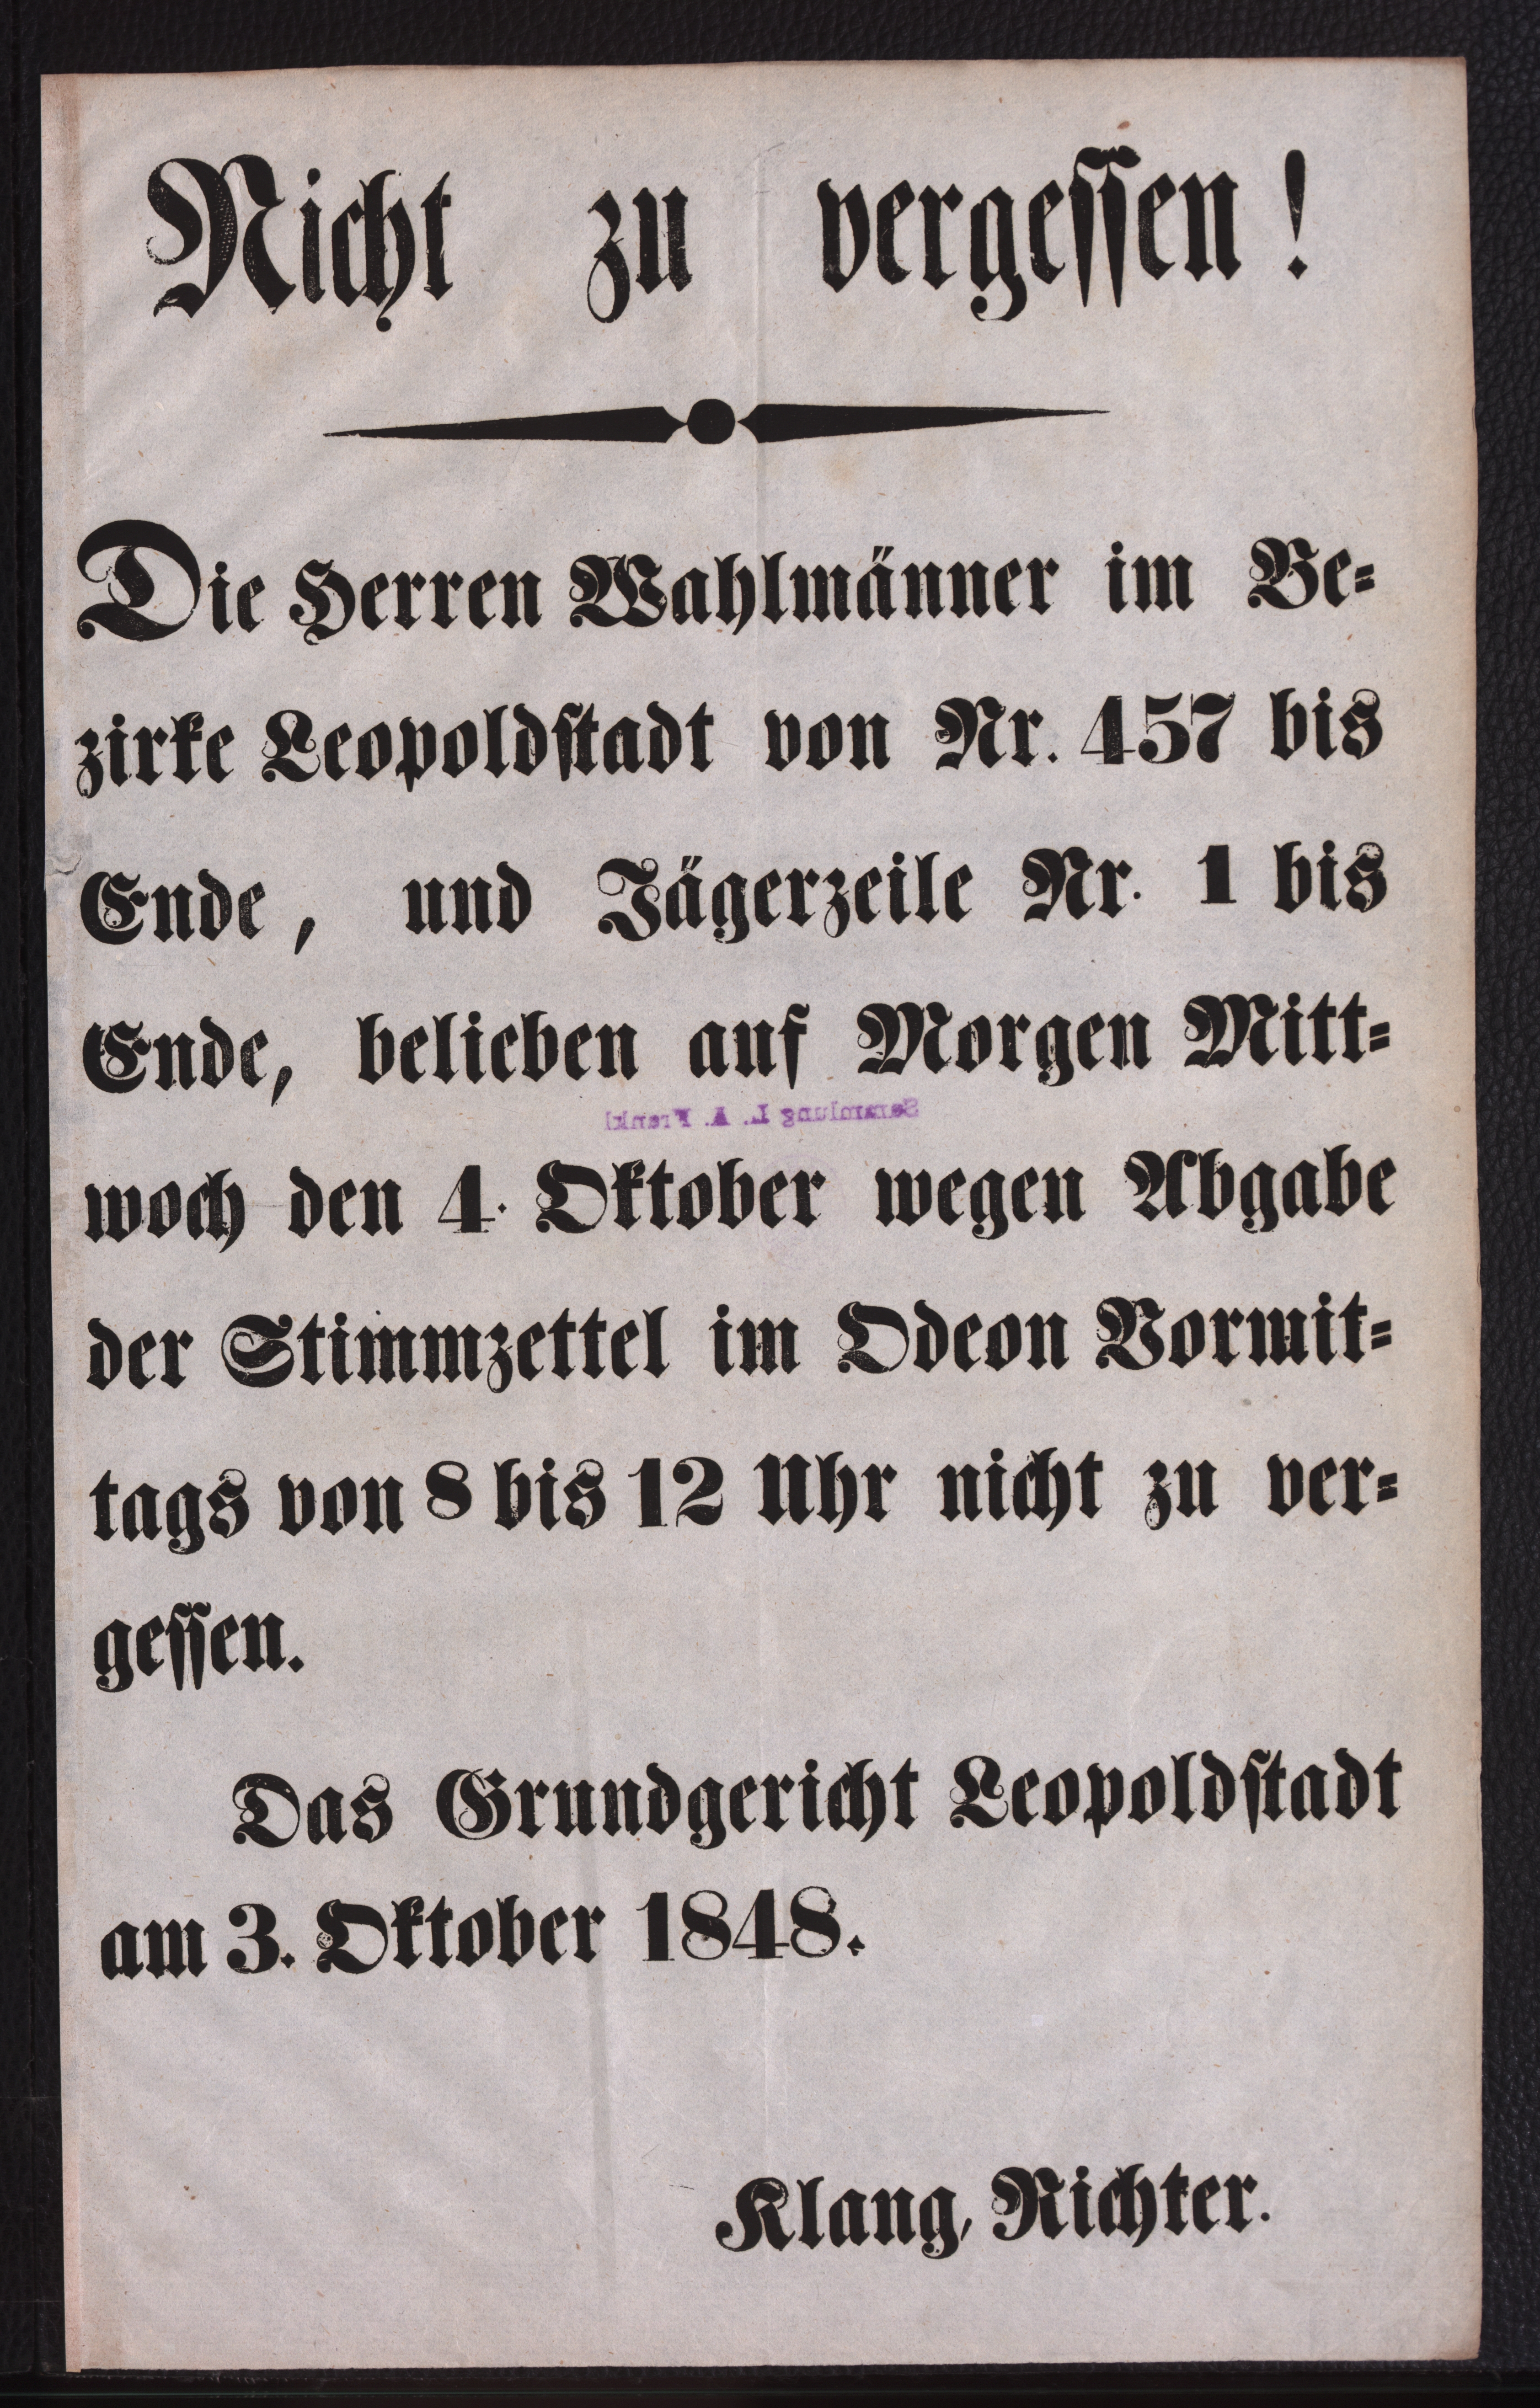 Nicht zu vergessen!
Die Herren Wahlmänner im Be=
zirke Leopoldstadt von Nr. 457 bis
Ende, und Jägerzeile Nr. 1 bis
Ende, belieben auf Morgen Mitt=
Sammlung L. A. Frankl
woch den 4. Oktober wegen Abgabe
der Stimmzettel im Odeon Vormit=
tags von 8 bis 12 Uhr nicht zu ver=
gessen.
Das Grundgericht Leopoldstadt
am 3. Oktober 1848.
Klang, Richter.